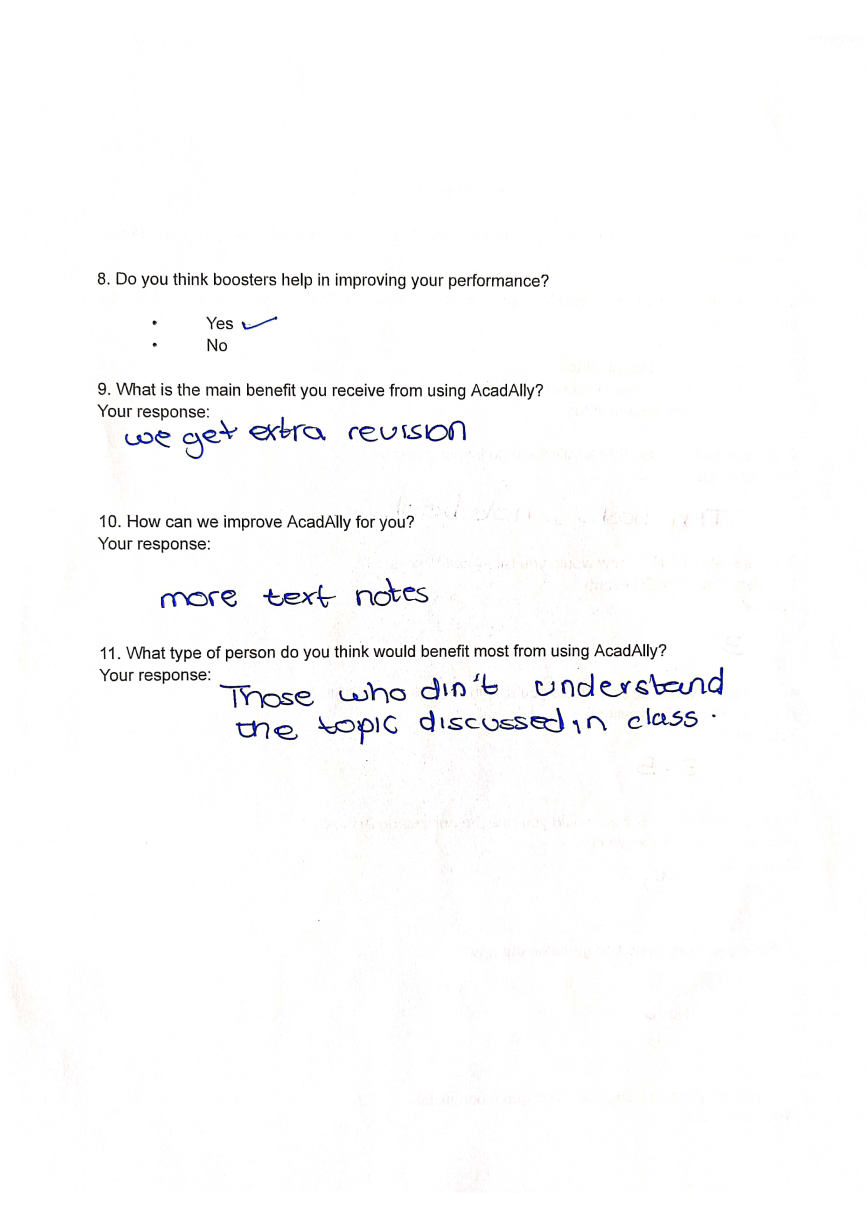 8. Do you think boosters help in improving your performance?
• Yes ✓
• No
9. What is the main benefit you receive from using AcadAlly?
Your response:
we get extra revision
10. How can we improve AcadAlly for you?
Your response:
more text notes
11. What type of person do you think would benefit most from using AcadAlly?
Your response:
Those who din't understand
the topic discussed in class.